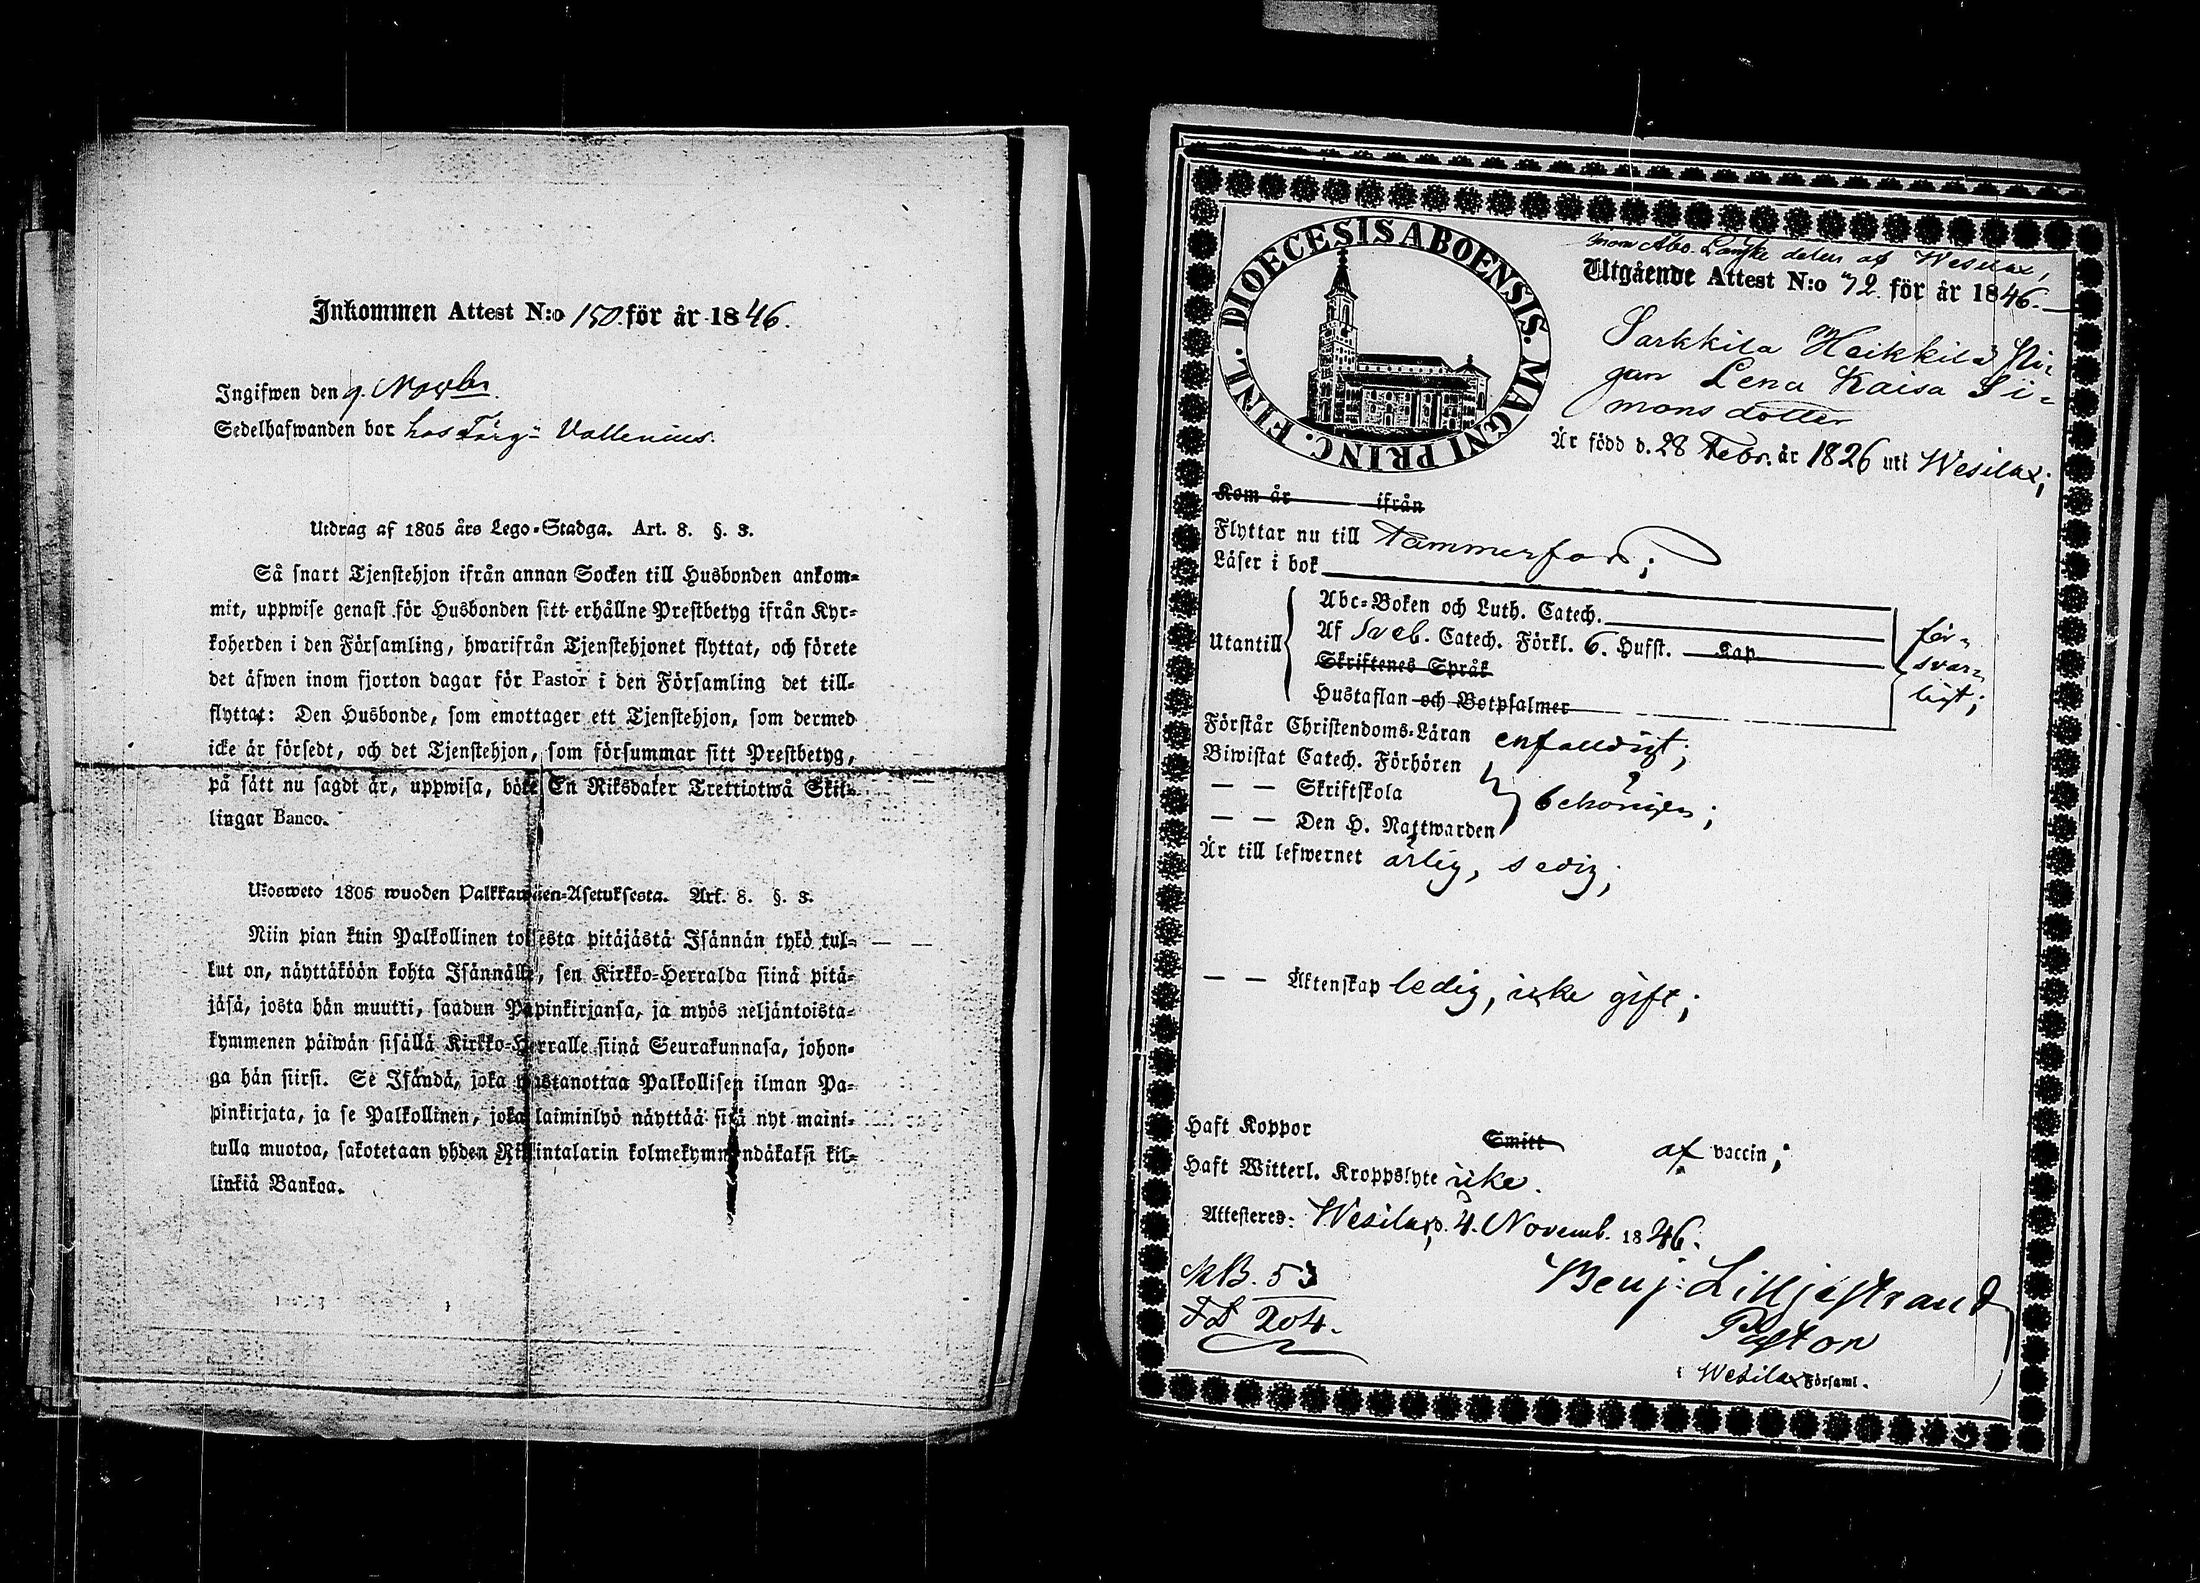 Inkommen Attest N:o 150. för år 1846.
Ingifwen den 9. Novbr.
Sedelhafwanden bor hos Färg: Vallenius.
Utdrag af 1805 års Lego-Stadga. Art. 8. §. 3.
Så snart Tjenstehjon ifrån annan Socken till Husbonden ankom-
mit, uppwise genast för Husbonden sitt erhållne Prestbetyg ifrån Kyr-
koherden i den Församling, hwarifrån Tjenstehjonet flyttat, och förete
det äfwen inom fjorton dagar för Pastor i den Församling det till-
flyttat: Den Husbonde, som emottager ett Tjenstehjon, som dermed
icke är försedt, och det Tjenstehjon, som försummar sitt Prestbetyg,
på sätt nu sagdt är, uppwisa, böte En Riksdaler Trettiotwå Skil-
lingar Banco.
Ukosweto 1805 wuoden Palkkawäen-Asetuksesta. Art. 8. §. 3.
Niin pian kuin Palkollinen toisesta pitäjästä Isännän tykö tul-
lut on, näyttäköön kohta Isännälle, sen Kirkko-Herralda siinä pitä-
jäsä, josta hän muutti, saadun Papinkirjansa, ja myös neljäntoista-
kymmenen päiwän sisällä Kirkko-Herralle siinä Seurakunnasa, johon-
ga hän siirsi. Se Isändä, joka wastanottaa Palkollisen ilman Pa-
pinkirjata, ja se Palkollinen, joka laiminlyö näyttää sitä nyt maini-
tulla muotoa, sakotetaan yhden Riksintalarin kolmekymmendäkaksi kil-
linkiä Bankoa.
DIOECESIS ABOENSIS. MAGNI PRINC. FINL.
Abo. delen af Wesilax,
Utgående Attest N:o 72. för år 1846.
Sarkkila Heikkilä Pi-
gan Lena Kaisa Si-
mons dotter
Är född d. 28 Febr. år 1826 uti Wesilax;
Kom år ifrån
Flyttar nu till Tammerfors;
Läser i bok
Utantill
Abc-Boken och Luth. Catech.
Af Sveb. Catech. Förkl. 6. Hufst. Kap.
Skriftenes Språk
Hustaflan och Botpsalmer
för-
svar-
ligt;
Förstår Christendoms-Läran enfaldigt;
Biwistat Catech. Förhören
— — Skriftskola
behörigen;
— — Den H. Nattwarden
Är till lefwernet ärlig, sedig;
— — Äktenskap ledig, icke gift;
Haft Koppor Smitt af vaccin;
Haft Witterl. Kroppslyte icke.
Attesteres: Wesilax, d. 4. Novemb. 1846.
KB. 53
204.
Benj: Lilljestrand
Pastor
i Wesilax Församl.